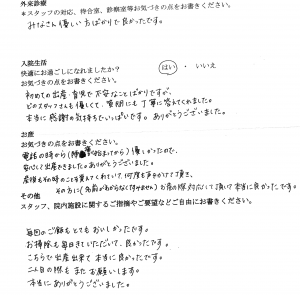 外来診療
*スタッフの対応、待合室、診察室等お気づきの点をお書きください。
みなさん優しい方ばかりで良かったです。
入院生活
快適にお過ごしになれましたか? はい ・ いいえ
お気づきの点をお書きください。
初めての出産・育児で不安なことばかりですが、
どのスタッフさんも優しくて、質問にも丁寧に答えてくれました。
本当に感謝の気持ちでいっぱいです。ありがとうございました。
お産
お気づきの点をお書きください。
電話の時から( 始まってから)優しかったので、
安心して出産できました。ありがとうございました。
産後もその時のことを覚えてくれていて、何度も声をかけて下さり、
その方に(名前がわからなくてすみません)お産の際対応して頂いて本当に良かったです。
その他
スタッフ、院内施設に関するご指摘やご要望などご自由にお書きください。
毎回のご飯もとてもおいしかったです。
お掃除も毎日きていただいて、良かったです。
こちらで出産出来て本当に良かったです。
二人目の際もまたお願いします。
本当にありがとうございました。